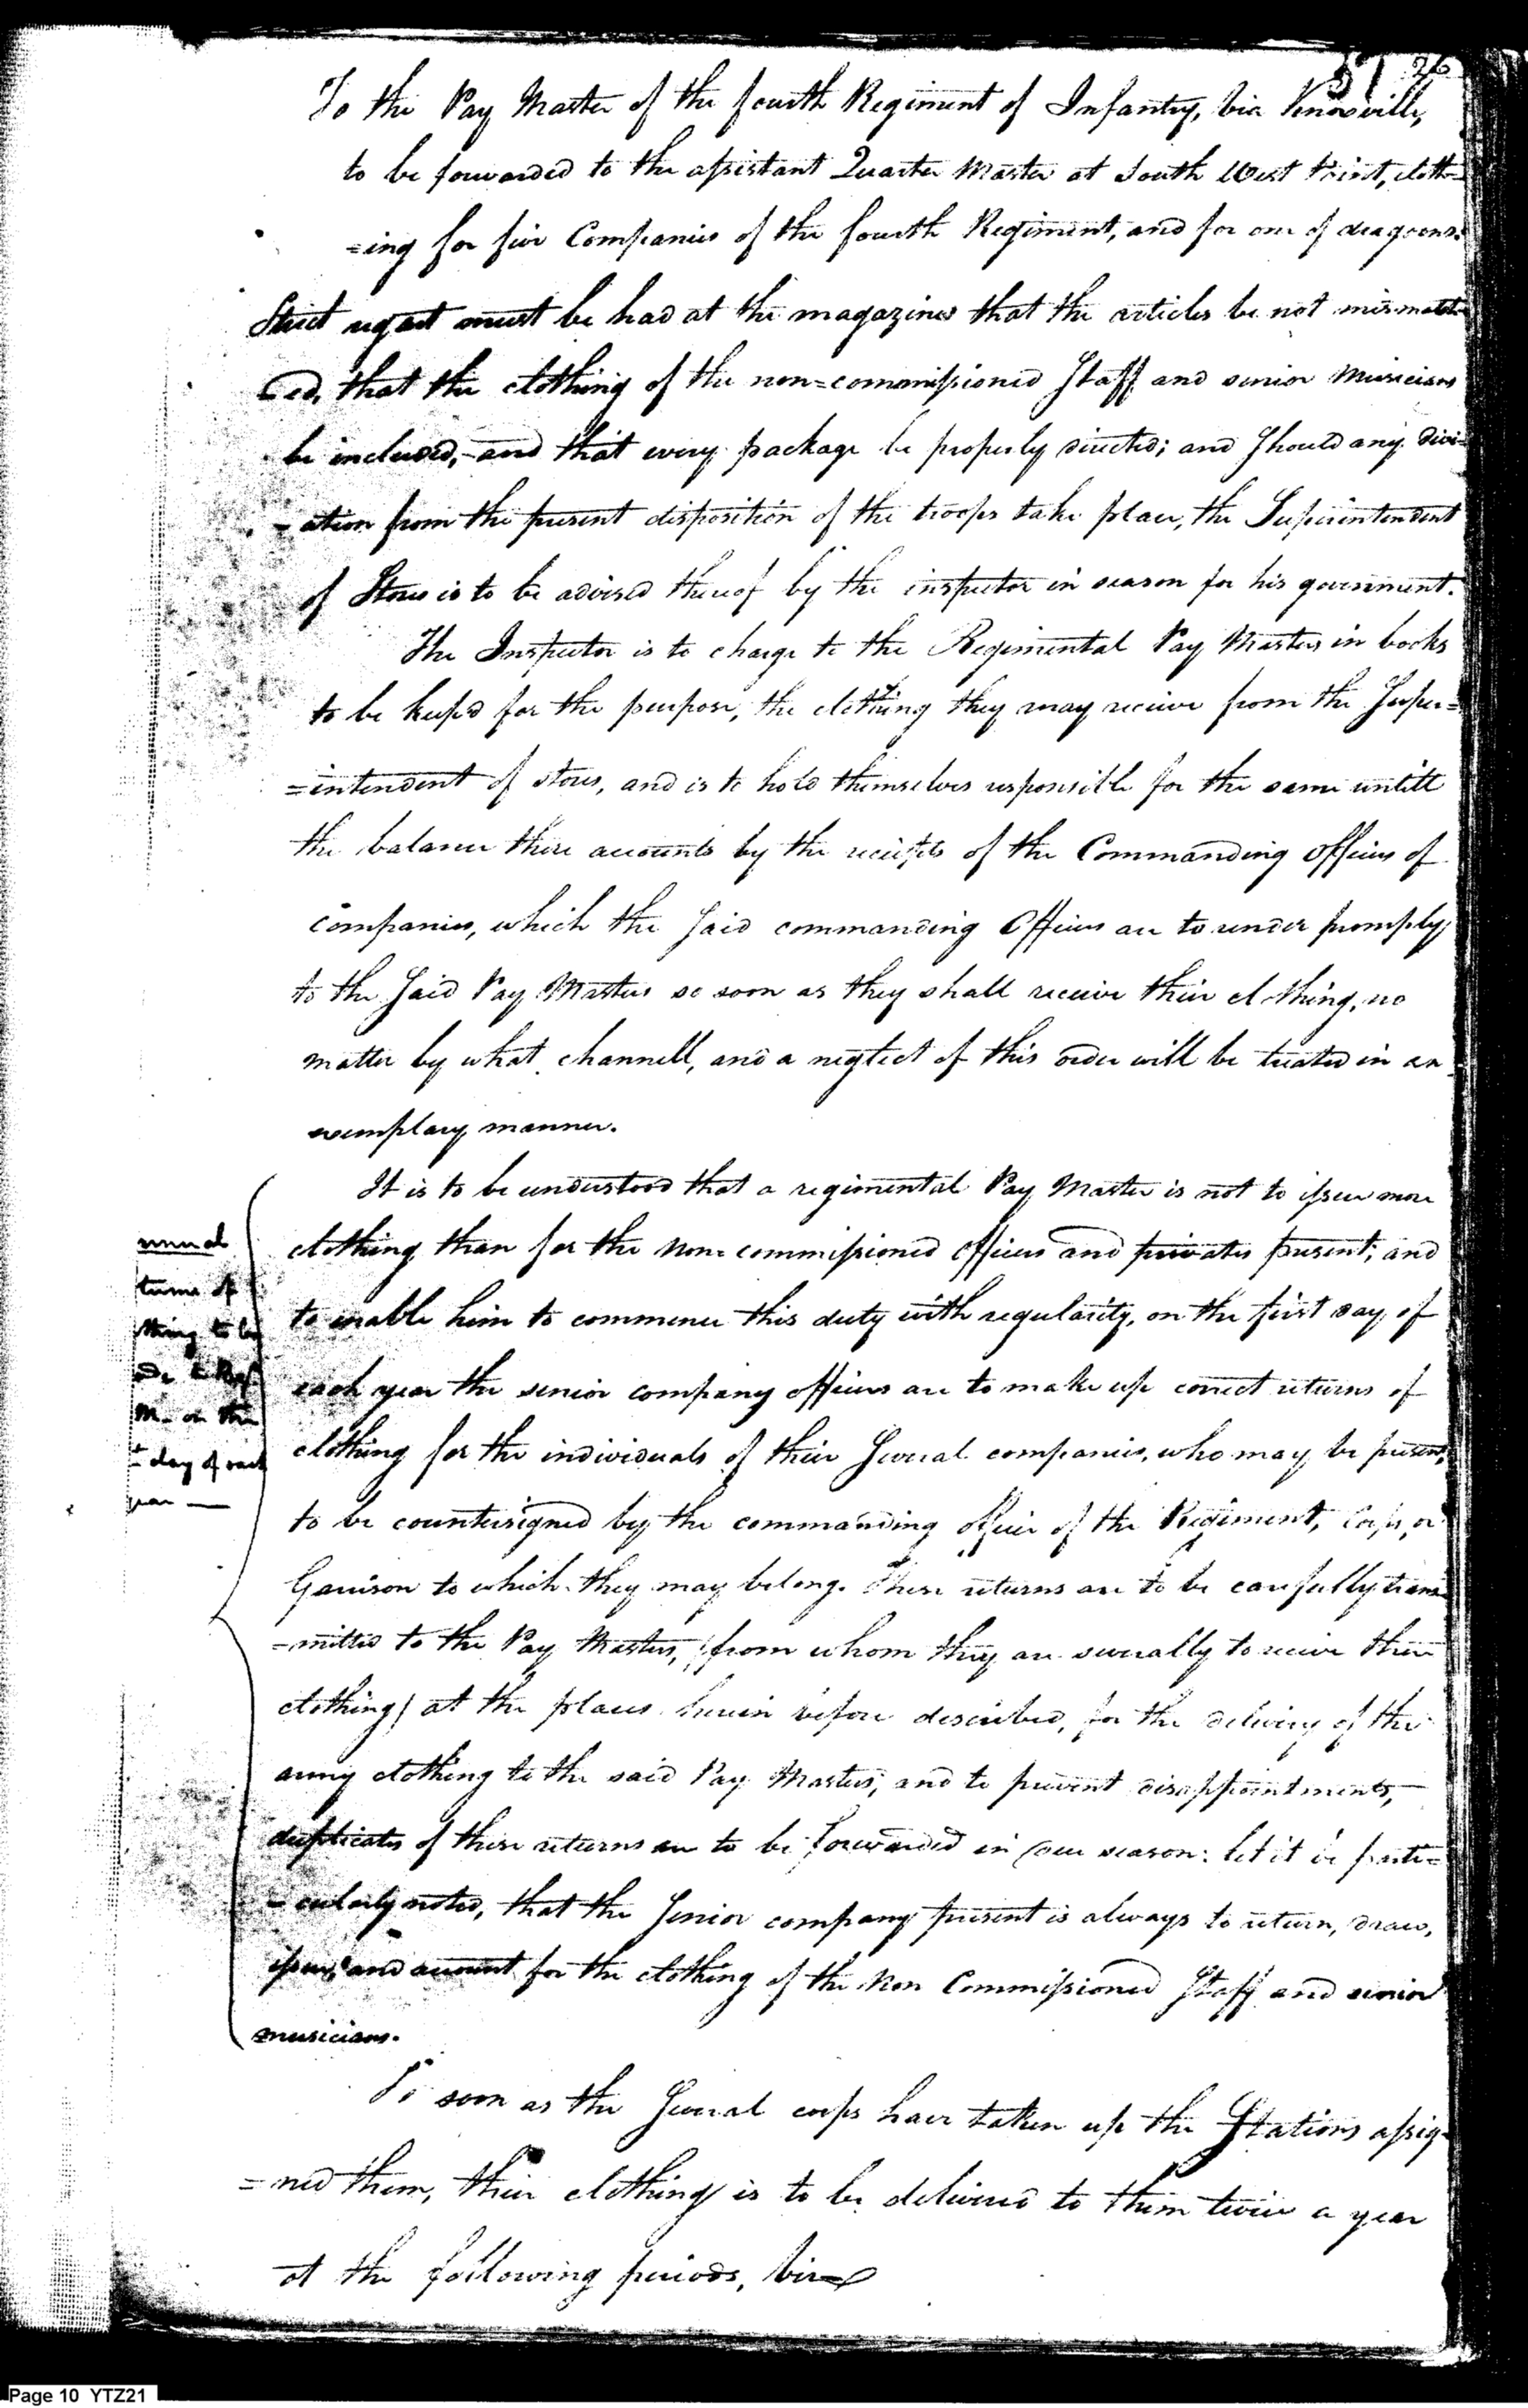 37 26
To the Pay Master of the fourth Regiment of Infantry, via Knoxville,
to be forwarded to the assistant Quarter Master at South West Point, cloth=
=ing for five Companies of the fourth Regiment, and for one of dragoons.
Strict regard must be had at the magazines that the articles be not mismatch
=ed, that the clothing of the non=commissioned Staff and senior Musicians
be included, and that every package be properly directed; and Should any divi=
=ation from the present disposition of the troops take place, the Superintendent
of Stores is to be advised thereof by the inspector in season for his government.
The Inspector is to charge to the Regimental Pay Masters in books
to be keep'd for the purpose, the clothing they may receive from the Super=
=intendent of stores, and is to hold themselves responsible for the same untill
the balance there accounts by the receipts of the Commanding Officers of
Companies, which the Said commanding Officers are to render promply,
to the Said Pay Masters so soon as they shall receive their clothing, no
matter by what channell, and a neglect of this order will be treated in an
exemplary manner.
It is to be understood that a regimental Pay Master is not to issue more
clothing than for the non=commissioned Officers and privates present; and
to enable him to commence this duty with regularity, on the first day of
each year the senior company officers are to make up correct returns of
clothing for the individuals of their Several companies, who may be present,
to be countersigned by the commanding officer of the Regiment, Corps, or
Garrison to which they may belong. These returns are to be carefully trans
=mitted to the Pay Masters, (from whom they are severally to receive their
clothing) at the places herein before described, for the delivery of the
army clothing to the said Pay Masters; and to prevent disappointments,
duplicates of these returns are to be forwarded in due season: let it be parti=
=cularly noted, that the Senior company present is always to return, draw,
issue, and account for the clothing of the Non Commissioned Staff and senior
musicians.
nnual
turns of
thing to be
ade to Reg
M. on the
1st day of each
year —
So soon as the Several corps have taken up the Stations assig
=ned them, their clothing is to be delivered to them twice a year
at the following periods, viz
Page 10 YTZ21